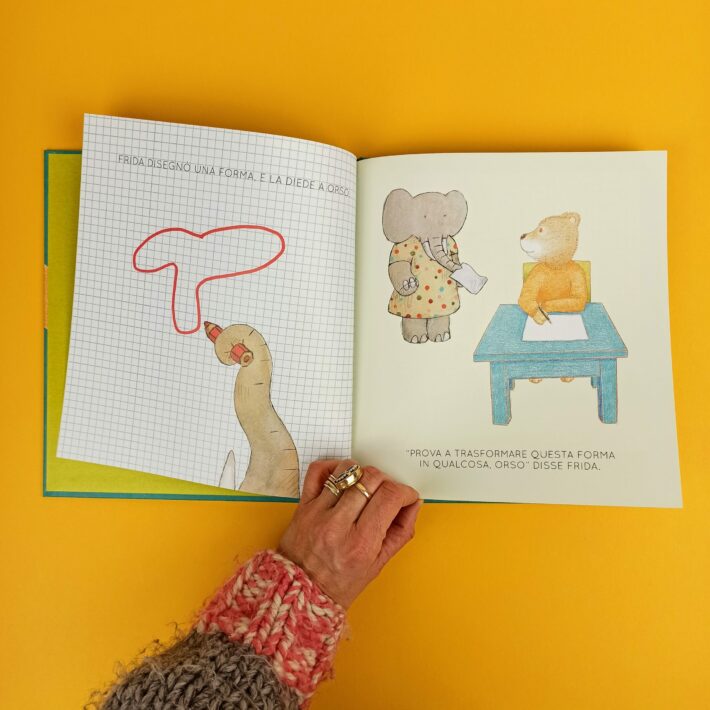 FRIDA DISEGNÒ UNA FORMA, E LA DIEDE A ORSO.
"PROVA A TRASFORMARE QUESTA FORMA
IN QUALCOSA, ORSO" DISSE FRIDA.